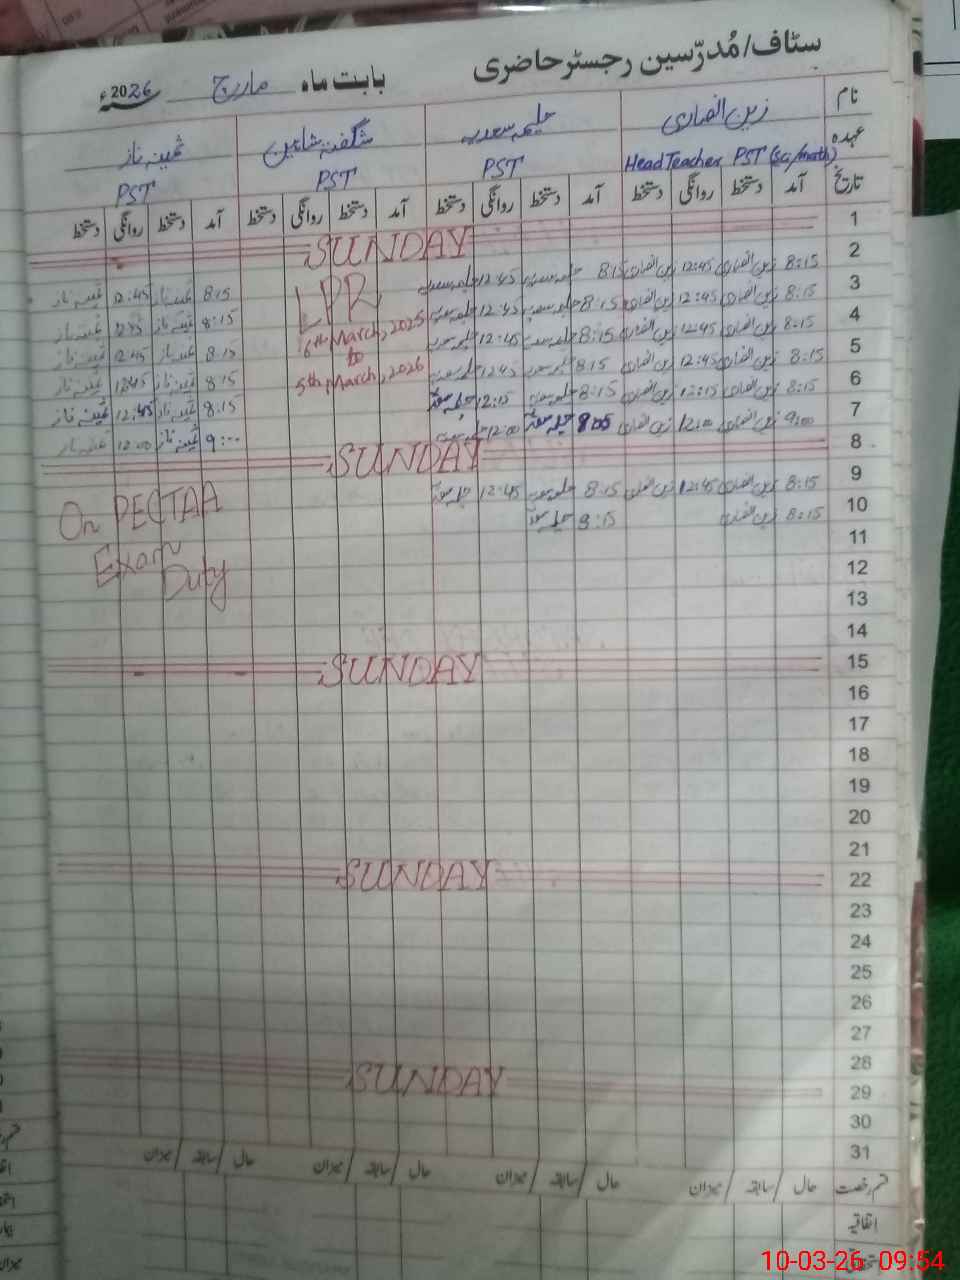 سٹاف/مُدرّسین رجسٹر حاضری بابت ماہ مارچ 2026ء
نام زین انصاری حلیمہ سعدیہ شگفتہ شاہین ثمینہ ناز
عہدہ Head Teacher PST (Sci/math) PST PST PST
تاریخ آمد دستخط روانگی دستخط آمد دستخط روانگی دستخط آمد دستخط روانگی دستخط آمد دستخط روانگی دستخط
1 SUNDAY
2 8:15 زین انصاری 12:45 زین انصاری 8:15 حلیمہ سعدیہ 12:45 حلیمہ سعدیہ LPR 8:15 ثمینہ ناز 12:45 ثمینہ ناز
3 8:15 زین انصاری 12:45 زین انصاری 8:15 حلیمہ سعدیہ 12:45 حلیمہ سعدیہ 6th March, 2025 8:15 ثمینہ ناز 12:45 ثمینہ ناز
4 8:15 زین انصاری 12:45 زین انصاری 8:15 حلیمہ سعدیہ 12:45 حلیمہ سعدیہ to 8:15 ثمینہ ناز 12:45 ثمینہ ناز
5 8:15 زین انصاری 12:45 زین انصاری 8:15 حلیمہ سعدیہ 12:45 حلیمہ سعدیہ 5th March, 2026 8:15 ثمینہ ناز 12:45 ثمینہ ناز
6 8:15 زین انصاری 12:15 زین انصاری 8:15 حلیمہ سعدیہ 12:15 حلیمہ سعدیہ 8:15 ثمینہ ناز 12:45 ثمینہ ناز
7 9:00 زین انصاری 12:00 زین انصاری حلیمہ سعدیہ 12:00 حلیمہ سعدیہ 9:00 ثمینہ ناز 12:00 ثمینہ ناز
8 SUNDAY
9 8:15 زین انصاری 12:45 زین انصاری 8:15 حلیمہ سعدیہ 12:45 حلیمہ سعدیہ On PECTAA
10 8:15 زین انصاری 8:15 حلیمہ سعدیہ
11 Exam
12 Duty
13
14
15 SUNDAY
16
17
18
19
20
21
22 SUNDAY
23
24
25
26
27
28
29 SUNDAY
30
31
قسم رخصت حال / سابقہ / میزان حال / سابقہ / میزان حال / سابقہ / میزان حال / سابقہ / میزان
اتفاقیہ
10-03-26 09:54